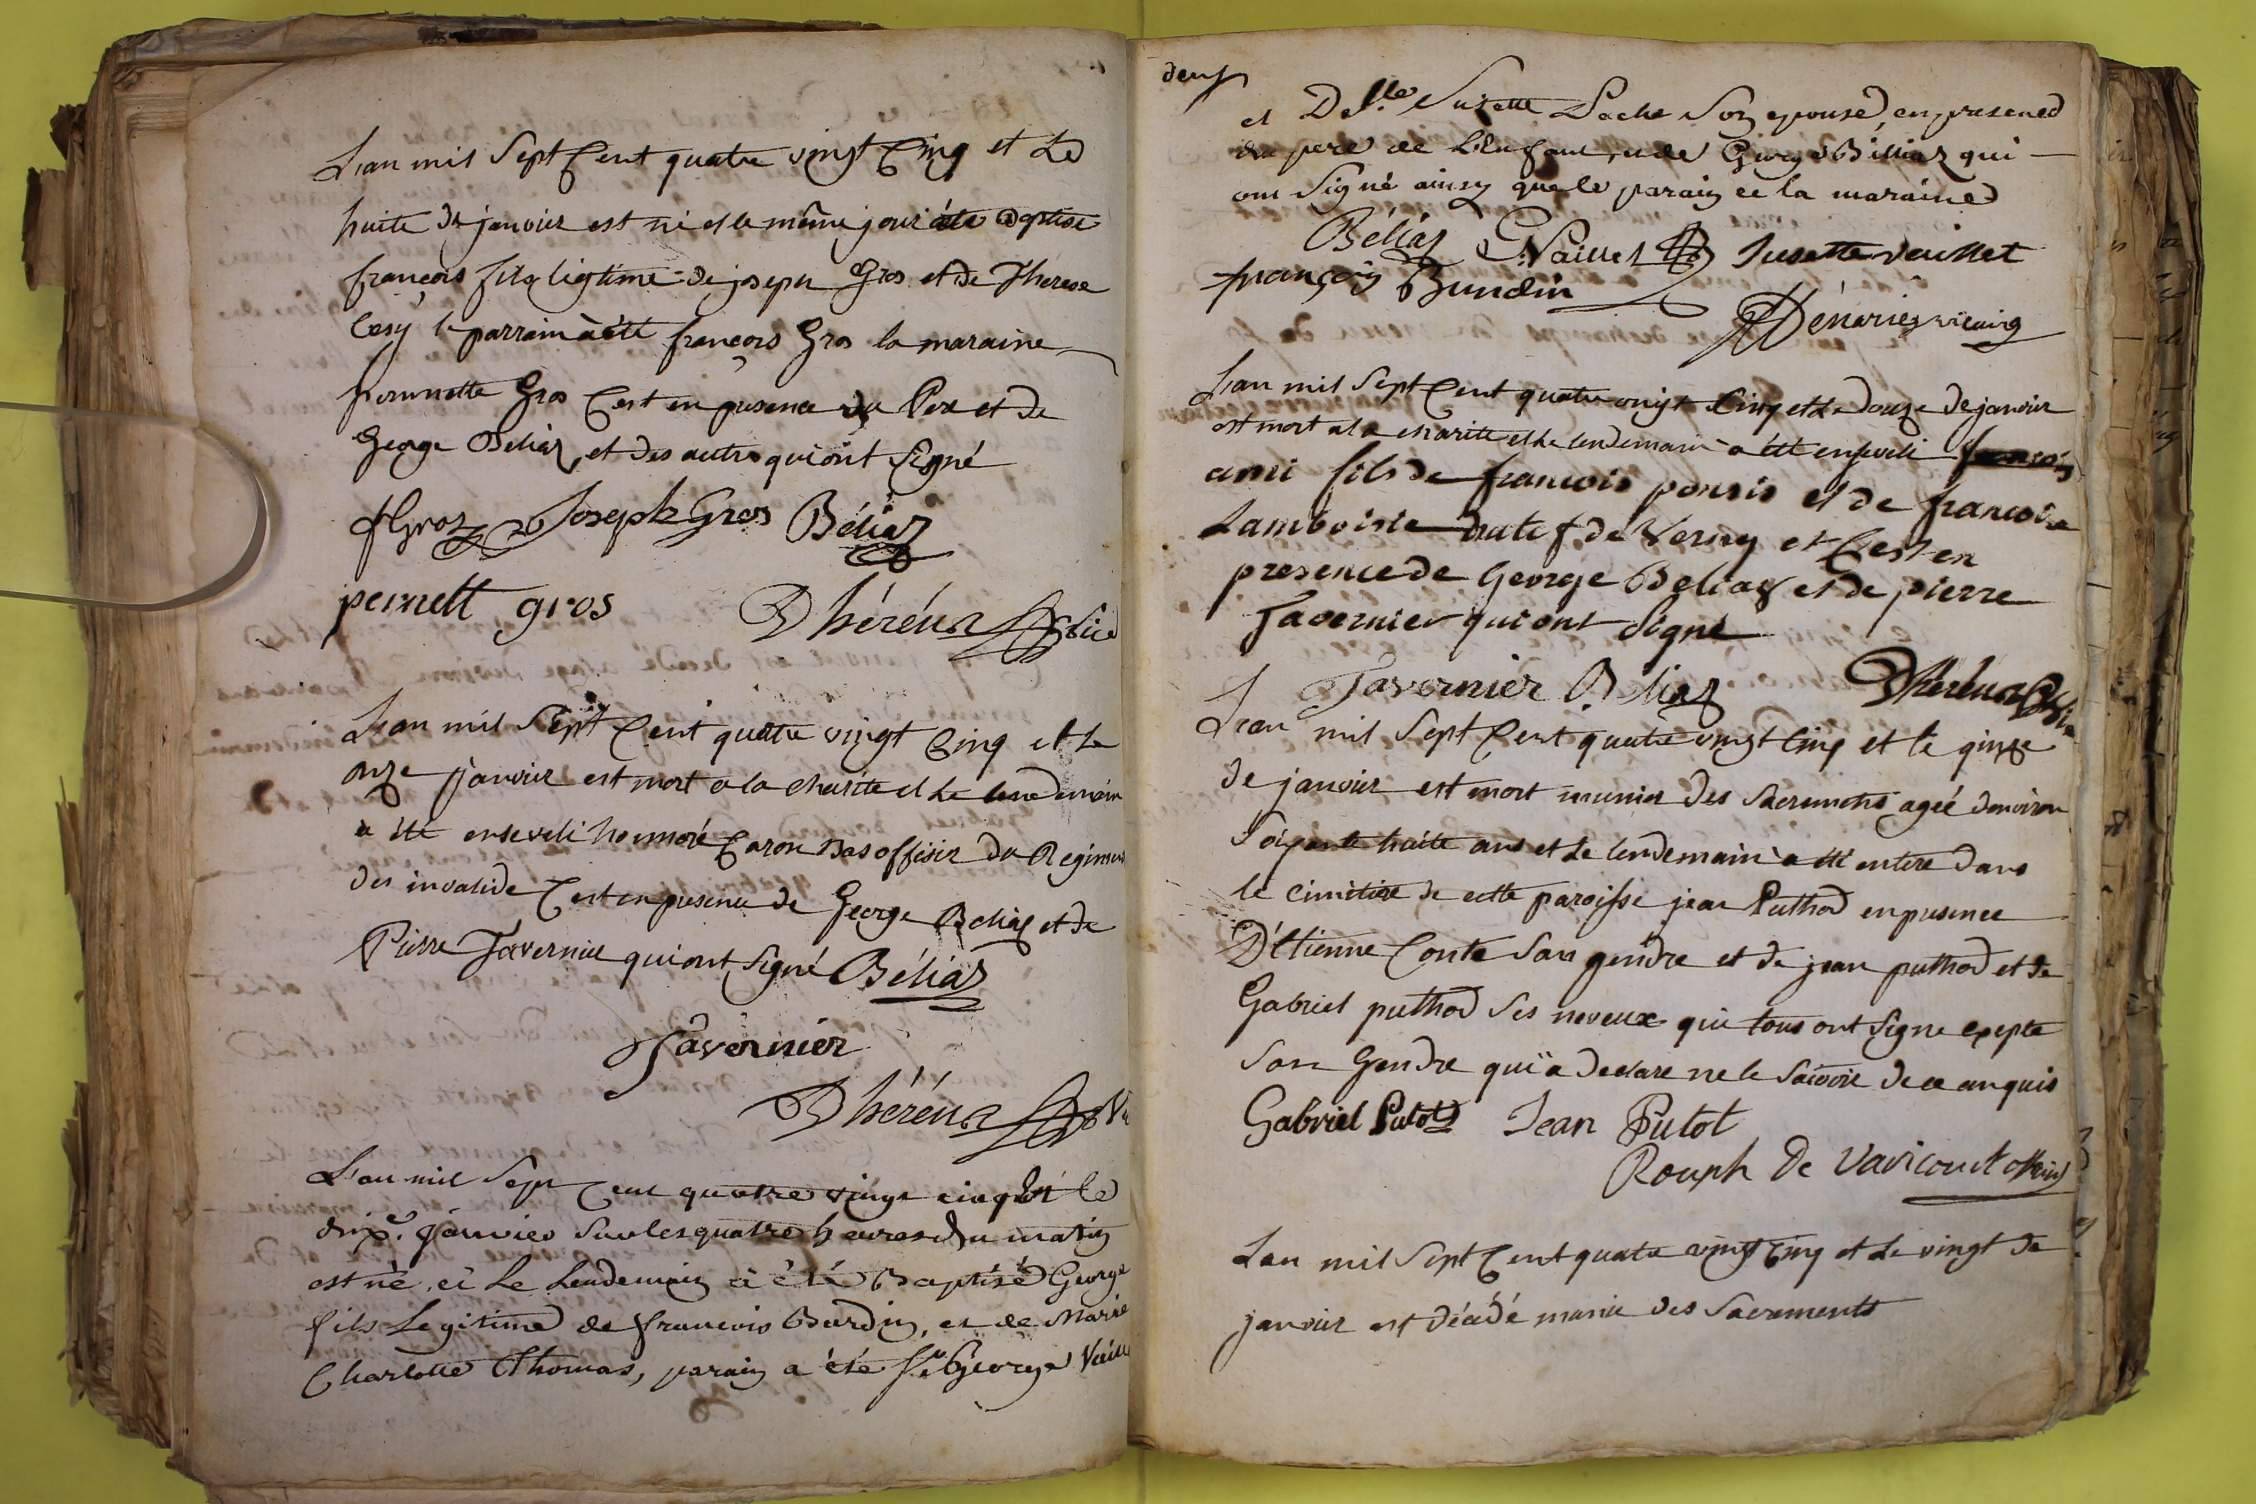 L'an mil Sept Cent quatre vingt Cinq et Le
huite de janvier est né et le même jour été Baptisé
françois fils ligtime de joseph Gros et de Therese
le parrain à été françois Gros la maraine
pernnette Gros C'est en presence du Pere et de
George Béliaz, et des autre qui ont Signé
fGroz Joseph Gros Béliaz
pernett gros Dhéréns
L'an mil Sept Cent quatre vingt Cinq et Le
onze janvier est mort a la charité et Le lendemain
a été enseveli honnoré Caron Bas officier du Regiment
des invalide C'est en presence de George Béliaz et de
Pierre Tavernier qui ont Signé Béliaz
Tavernier
Dhéréns
L'an mil Sept Cent quatre vingt cinq et le
dixe. janvier Sur les quatre heures du matin
est né, et Le Lendemain à été Baptisé George
fils Legitime de francois Burdin, et de Marie
Charlotte Thomas, parain a été Sr. George Vaill
deux
et Dslle. Suzette Lache Son epouse, en presence
du pere de L'enfant, et de George Billiaz qui
ont Signé ainsy que le parain et la maraine
Béliaz G Vaillet Susette vaillet
françois Burdin
Dénariez vicaire
L'an mil Sept Cent quatre vingt Cinq et Le douze de janvier
est mort a la charitte et Le lendemain a été enseveli
ami fils de francois ponsis et de francoise
Lamboisie natif de Verny et C'est en
presence de George Béliaz et de pierre
Tavernier qui ont Signé
Tavernier Béliaz Dhéréns
L'an mil Sept Cent quatre vingt Cinq et le quinze
de janvier est mort munier des Sacrements ageé denviron
Soixante huite ans et Le lendemain a été entere dans
le cimitiere de cette paroisse jean Puthod en presence
D'Etienne Conte Son gendre et de jean puthod et de
Gabriel puthod Ses neveux qui tous ont Signe exepte
Son Gendre qui a declare ne le Savoir de ce anquis
Gabriel Putot Jean Putot
Rouph De Varicourt official
L'an mil Sept Cent quatre vingt Cinq et Le vingt de
janvier est décédé munie des Sacrements